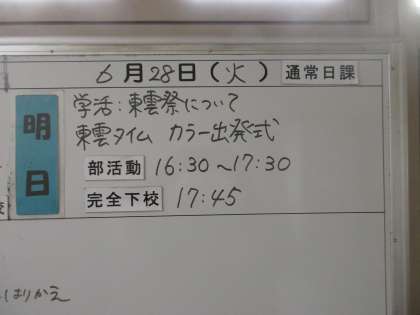 6月28日(火) 通常日課
明日
学活:東雲祭について
東雲タイム カラー出発式
部活動 16:30～17:30
完全下校 17:45
はりかえ